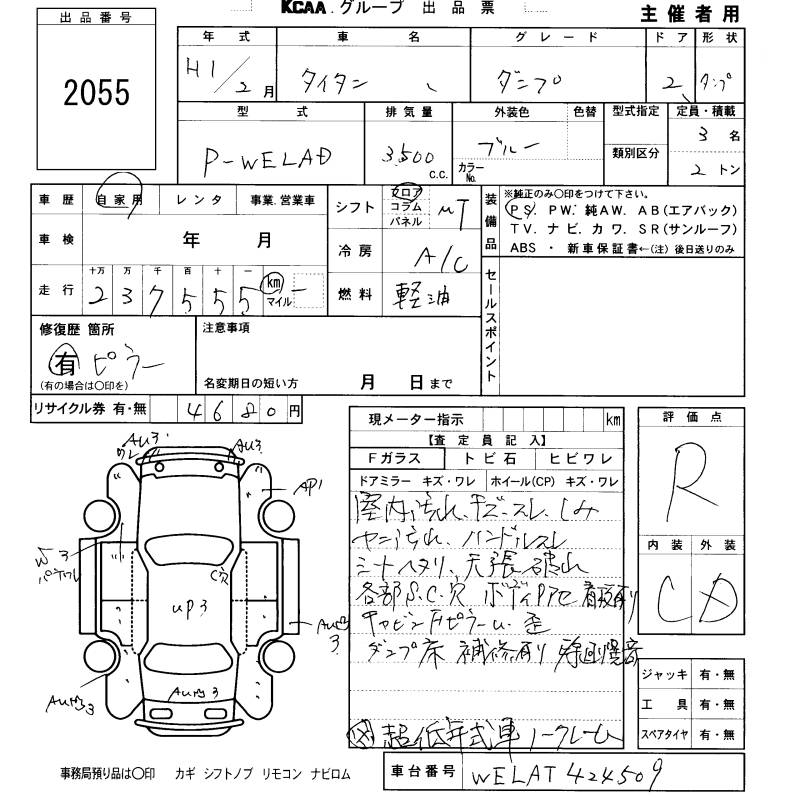 KCAA.グループ 出品票 主催者用
出品番号
2055
年式 車名 グレード ドア 形状
H1/2月 タイタン ダンプ 2 ダンプ
型式 排気量 外装色 色替 型式指定 定員・積載
P-WELAD 3500 c.c. ブルー カラーNo. 類別区分 3名
2トン
車歴 自家用 レンタ 事業.営業車
車検 年 月
走行 十万 万 千 百 十 一
2 3 7 5 5 5 km マイル
シフト フロア コラム パネル MT
冷房 A/C
燃料 軽油
装備品 ※純正のみ○印をつけて下さい。
PS. PW. 純AW. AB(エアバック)
TV. ナビ. カワ. SR(サンルーフ)
ABS ・ 新車保証書←(注) 後日送りのみ
セールスポイント
修復歴 箇所
有 ピラー
(有の場合は○印を)
注意事項
名変期日の短い方 月 日まで
リサイクル券 有・無 4680円
現メーター指示 km
【査定員記入】
Fガラス トビ石 ヒビワレ
ドアミラー キズ・ワレ ホイール(CP) キズ・ワレ
室内汚れ、キズ・スレ、しみ
ヤニ汚れ、ハンドルスレ
シートヘタリ、天張破れ
各部S.C.穴 ボディ
キャビンFピラーU.歪
ダンプ床 補修有り 異音
超低年式車 ノークレーム
評価点
R
内装 外装
C D
ジャッキ 有・無
工具 有・無
スペアタイヤ 有・無
AU3
ワレ
AU3
AP1
W3
C穴
UP3
3
AU凹3
AU凹3
事務局預り品は○印 カギ シフトノブ リモコン ナビロム
車台番号 WELAT424509